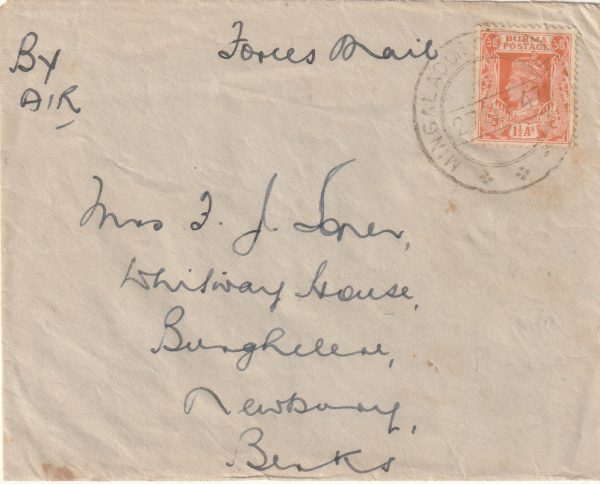 By
AIR
Forces Mail
BURMA
POSTAGE
1½As
MINGALADON
Mrs F. J. Soper,
Whitway House,
Burghclere,
Newbury,
Berks